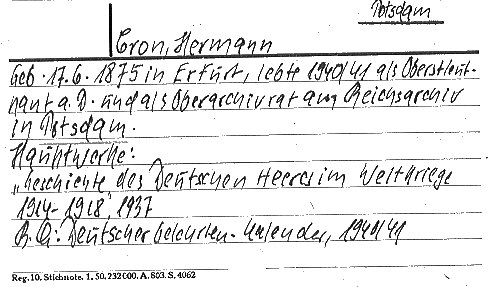 Potsdam
Cron, Hermann
Geb. 17.6.1875 in Erfurt, lebte 1940/41 als Oberstleut-
nant a.D. und als Oberarchivrat am Reichsarchiv
in Potsdam.
Hauptwerke:
"Geschichte des Deutschen Heeres im Weltkriege
1914-1918", 1937
B.Q.: Deutscher Gelehrten-Kalender, 1940/41
Reg. 10. Stichnote. 1. 50. 232000. A. 803. S. 4062